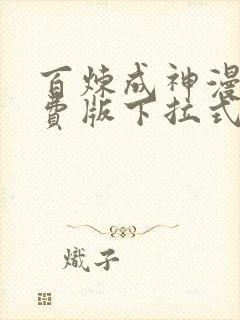 百炼成神漫
费版下拉式
熾子